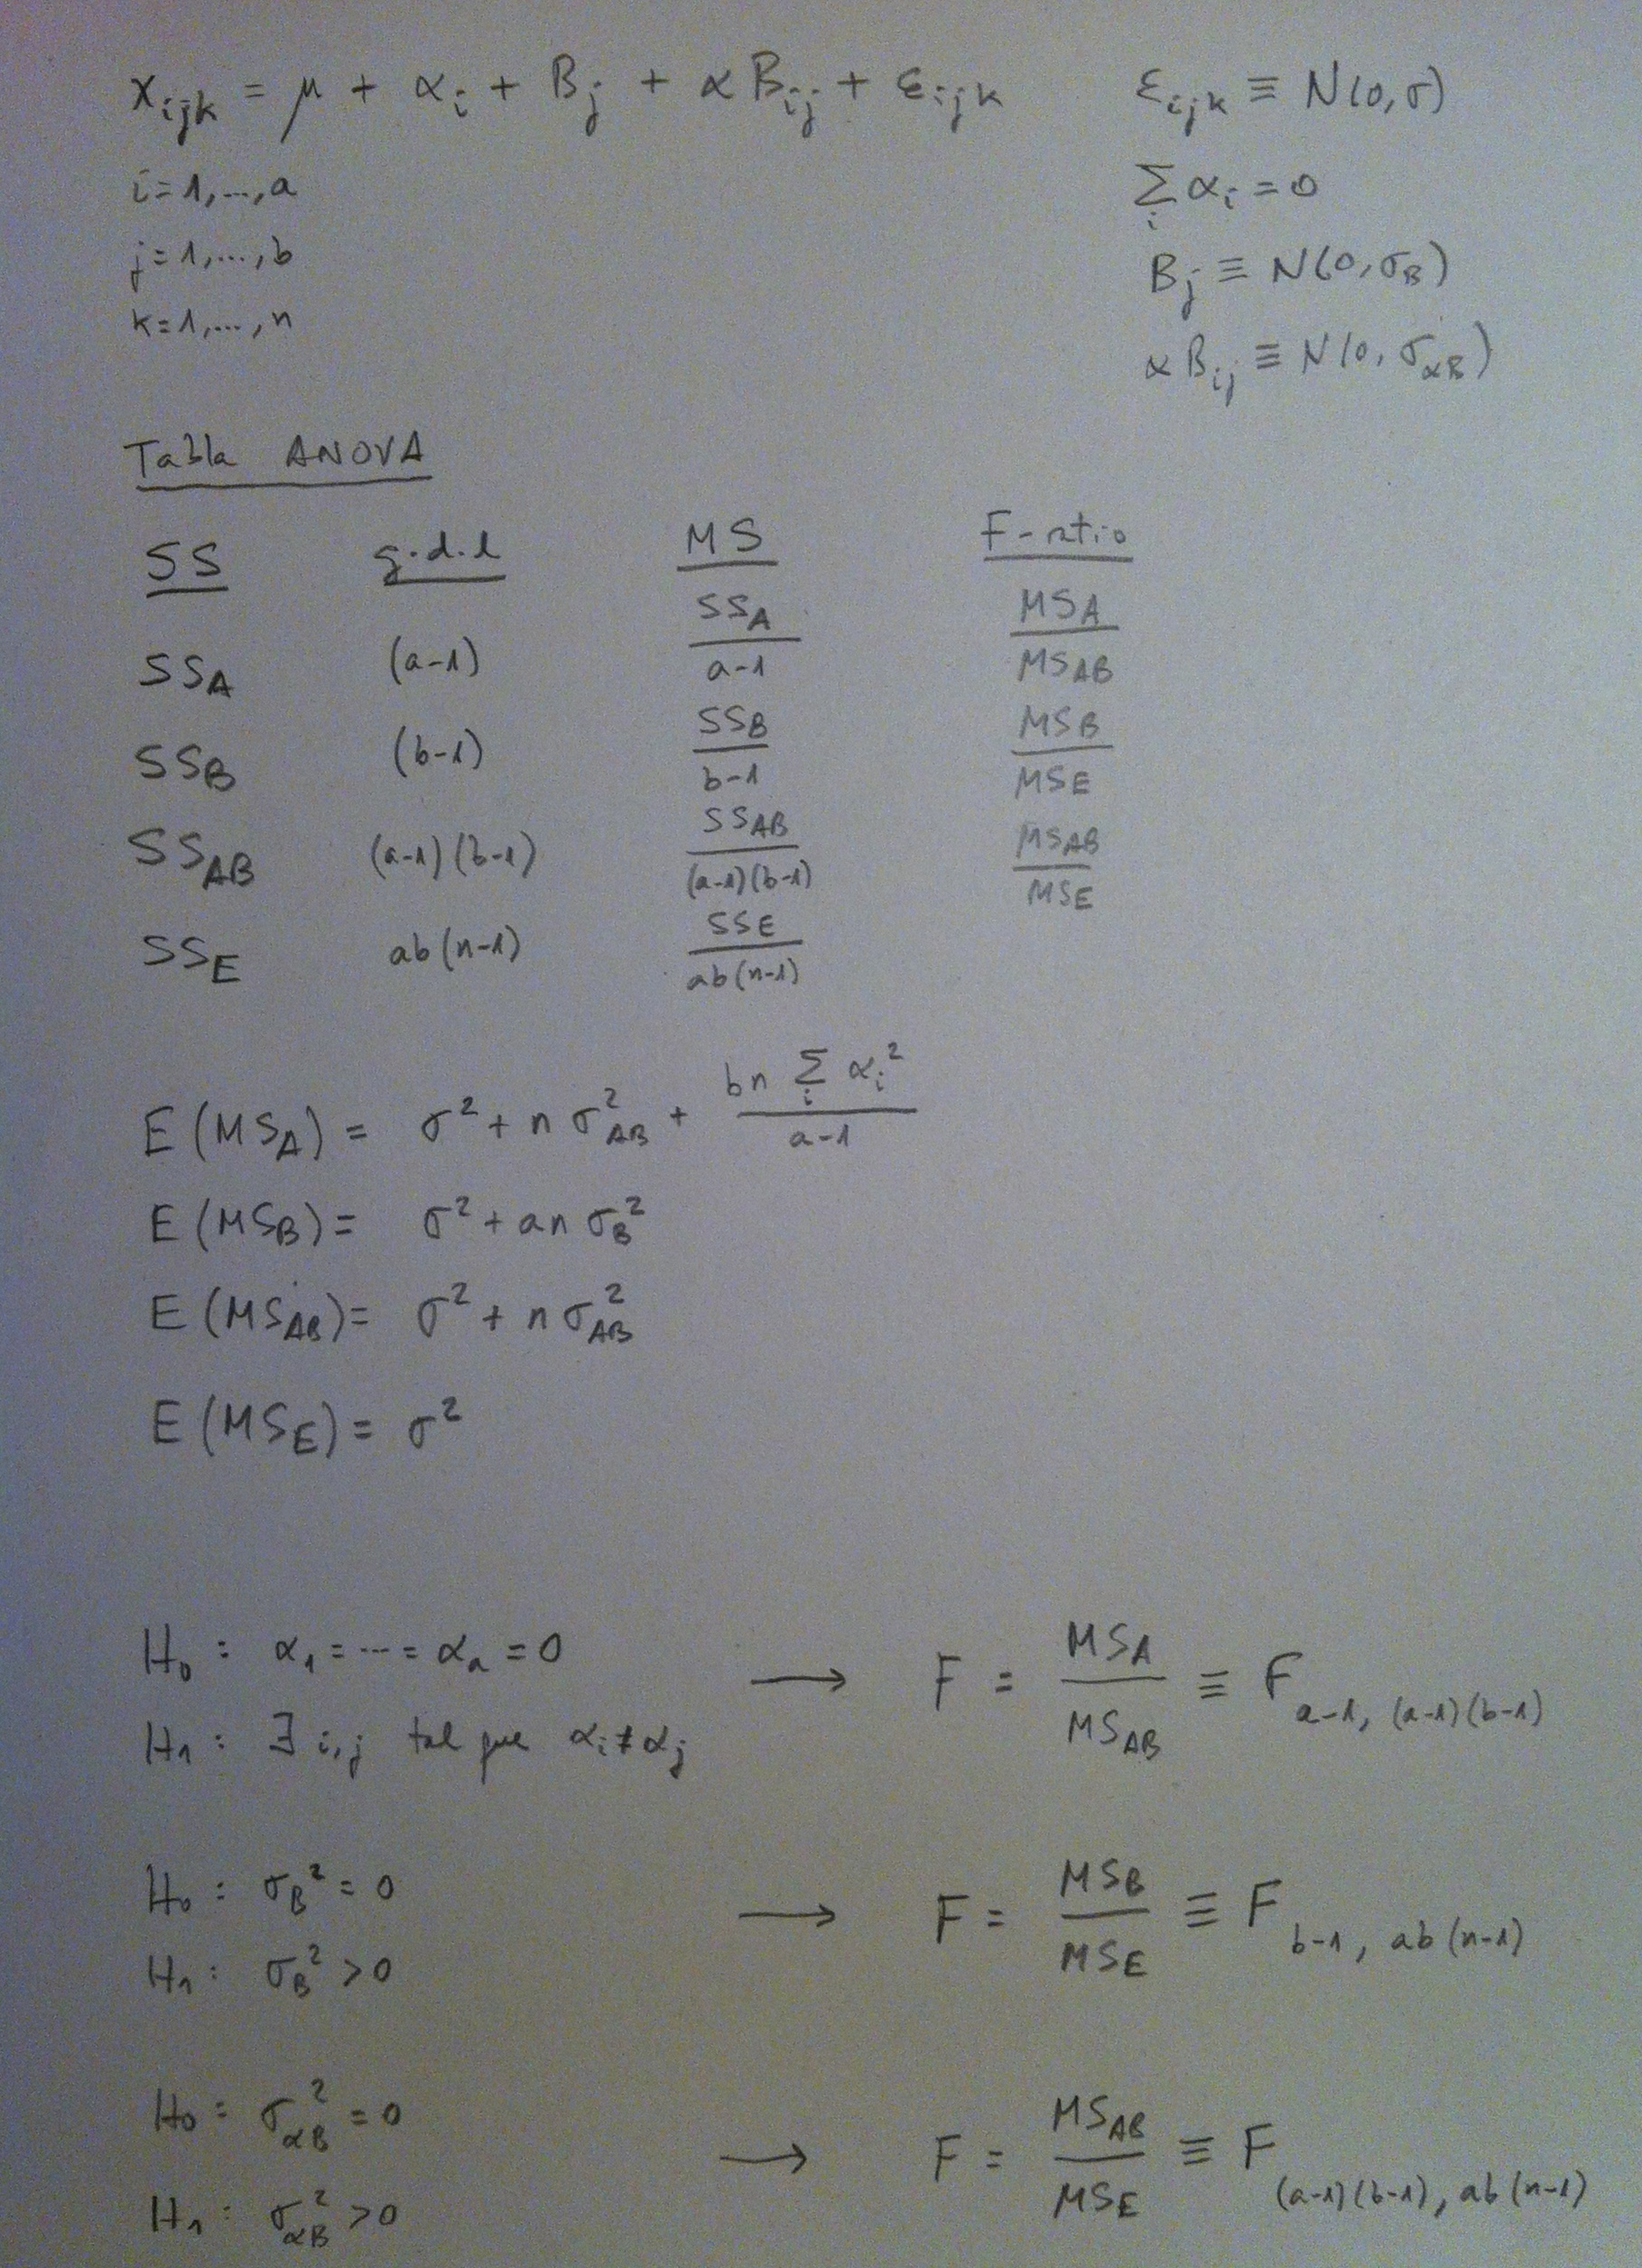 x_ijk = μ + α_i + B_j + αB_ij + ε_ijk    ε_ijk ≡ N(0,σ)
i=1,...,a    Σ_i α_i = 0
j=1,...,b    B_j ≡ N(0,σ_B)
k=1,...,n    αB_ij ≡ N(0,σ_αB)
Tabla ANOVA
SS    g.d.l    MS    F-ratio
SS_A    (a-1)    SS_A / a-1    MS_A / MS_AB
SS_B    (b-1)    SS_B / b-1    MS_B / MS_E
SS_AB    (a-1)(b-1)    SS_AB / (a-1)(b-1)    MS_AB / MS_E
SS_E    ab(n-1)    SS_E / ab(n-1)
E(MS_A) = σ² + nσ²_AB + bn Σ_i α_i² / a-1
E(MS_B) = σ² + an σ_B²
E(MS_AB) = σ² + nσ²_AB
E(MS_E) = σ²
H₀ : α₁ = ... = α_a = 0    → F = MS_A / MS_AB ≡ F_a-1, (a-1)(b-1)
H₁ : ∃ i,j tal que α_i ≠ α_j
H₀ : σ_B² = 0    → F = MS_B / MS_E ≡ F_b-1, ab(n-1)
H₁ : σ_B² > 0
H₀ : σ²_αB = 0    → F = MS_AB / MS_E ≡ F_(a-1)(b-1), ab(n-1)
H₁ : σ²_αB > 0